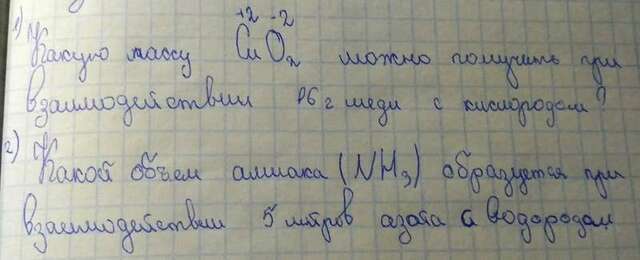 +2 -2
1) Какую массу CuO₂ можно получить при
взаимодействии 16 г меди с кислородом?
2) Какой объем амиака (NH₃) образуется при
взаимодействии 5 литров азота с водородом